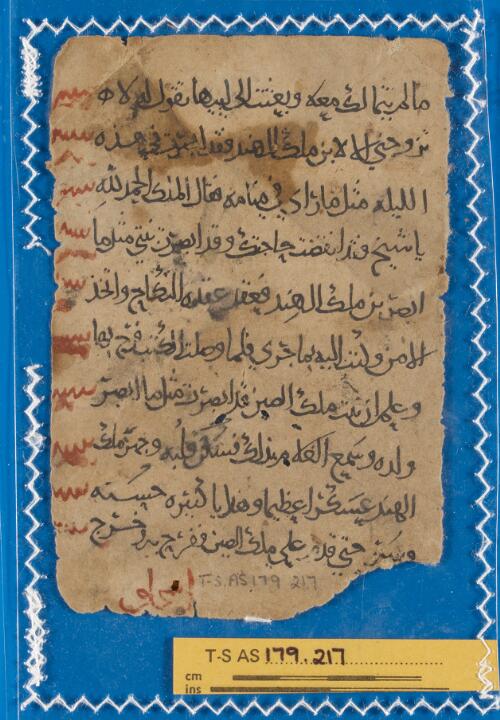 ما لم يتمالك معه وبعثت الى ابيها تقول له لا
تزوجني الا لابن ملك الهند فقد ابصرت في هذه
الليله مثل ما راى في منامه فقال الملك الحمد لله
يا شيخ قد انقضت حاجتك وقد ابصرت بنتي مثل ما
ابصر ابن ملك الهند فعقد عقده النكاح واتخذ
الامر وكتب اليه بما جرى فلما وصلت الكتب فرح بها
وعلم ان بنت ملك الصين قد ابصرت مثل ما ابصر
ولده وسمع الغلام بذلك فسكن قلبه وجهز ملك
الهند عسكرا عظيما وهدايا كثيره حسنه
وسير حتى قدم على ملك الصين ففرح به وخرج
T-S. AS 179 217
T-S AS 179.217
cm
ins